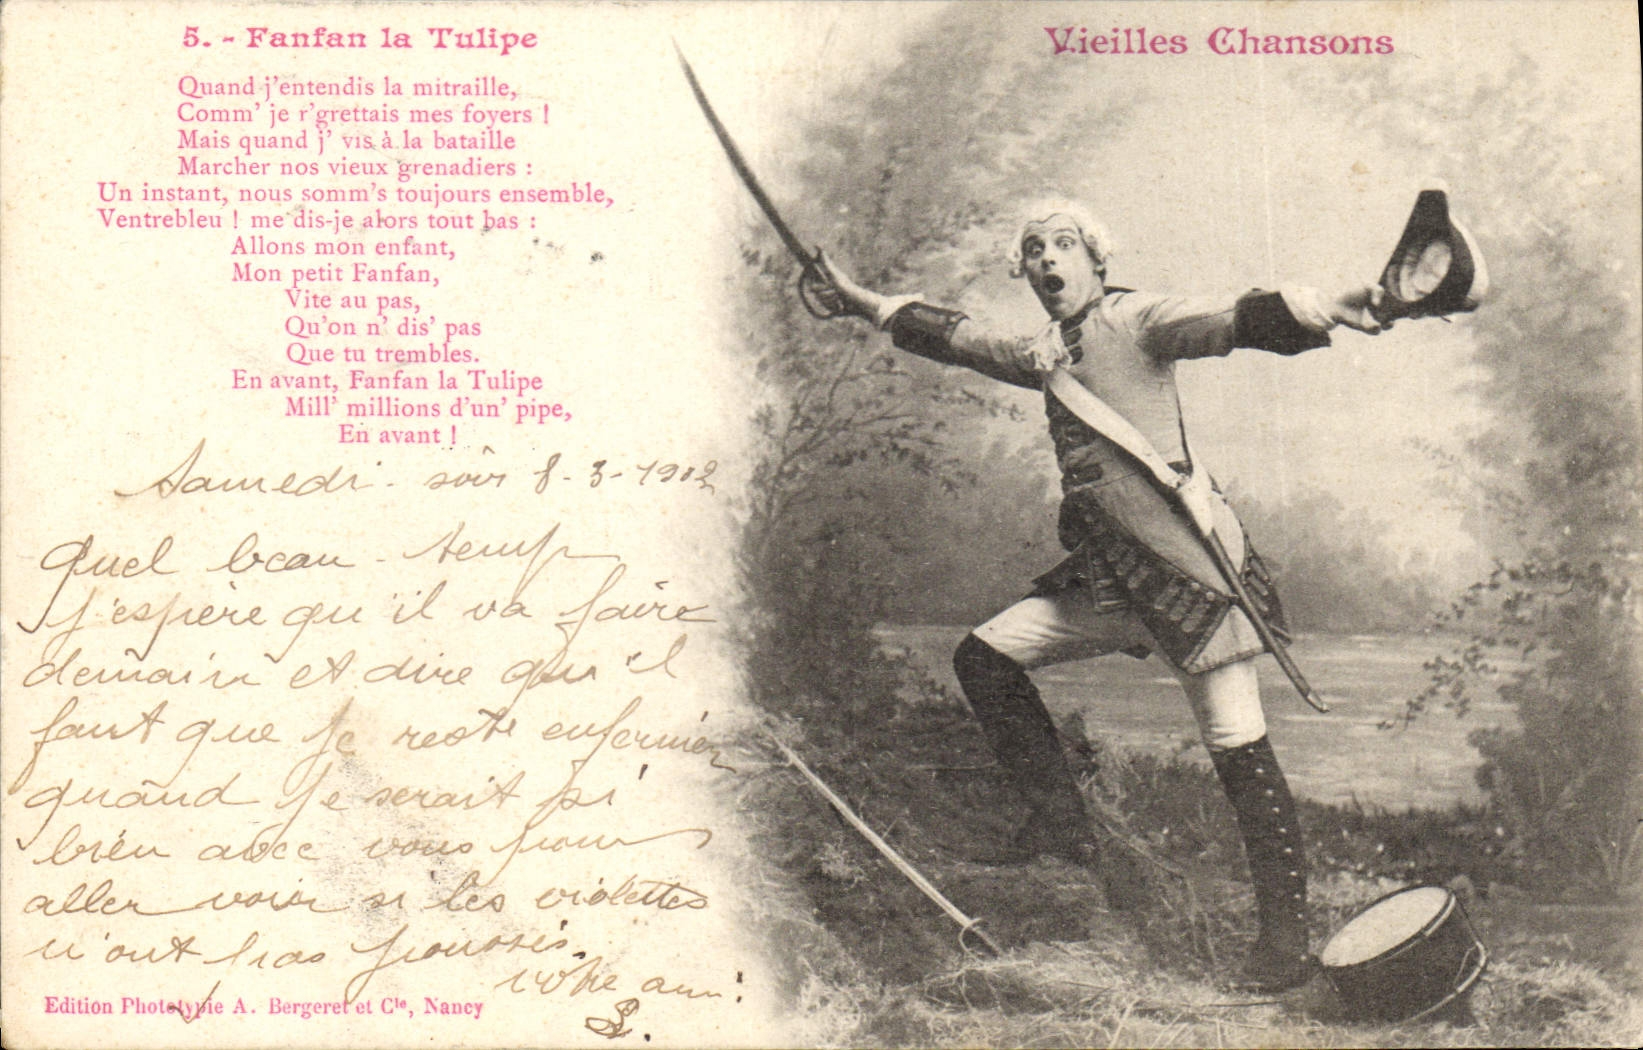 5. - Fanfan la Tulipe
Vieilles Chansons
Quand j'entendis la mitraille,
Comm' je r'grettais mes foyers !
Mais quand j' vis à la bataille
Marcher nos vieux grenadiers :
Un instant, nous somm's toujours ensemble,
Ventrebleu ! me dis-je alors tout bas :
Allons mon enfant,
Mon petit Fanfan,
Vite au pas,
Qu'on n' dis' pas
Que tu trembles.
En avant, Fanfan la Tulipe
Mill' millions d'un' pipe,
En avant !
Samedi - soir 8-3-1902
Quel beau - temp
j'espère qu'il va faire
demain et dire qu'il
faut que je reste enfermér
quand je serait si
bien avec vous pour
aller voir si les violettes
n'ont pas poussés.
votre ami
Edition Phototypie A. Bergeret et Cie, Nancy